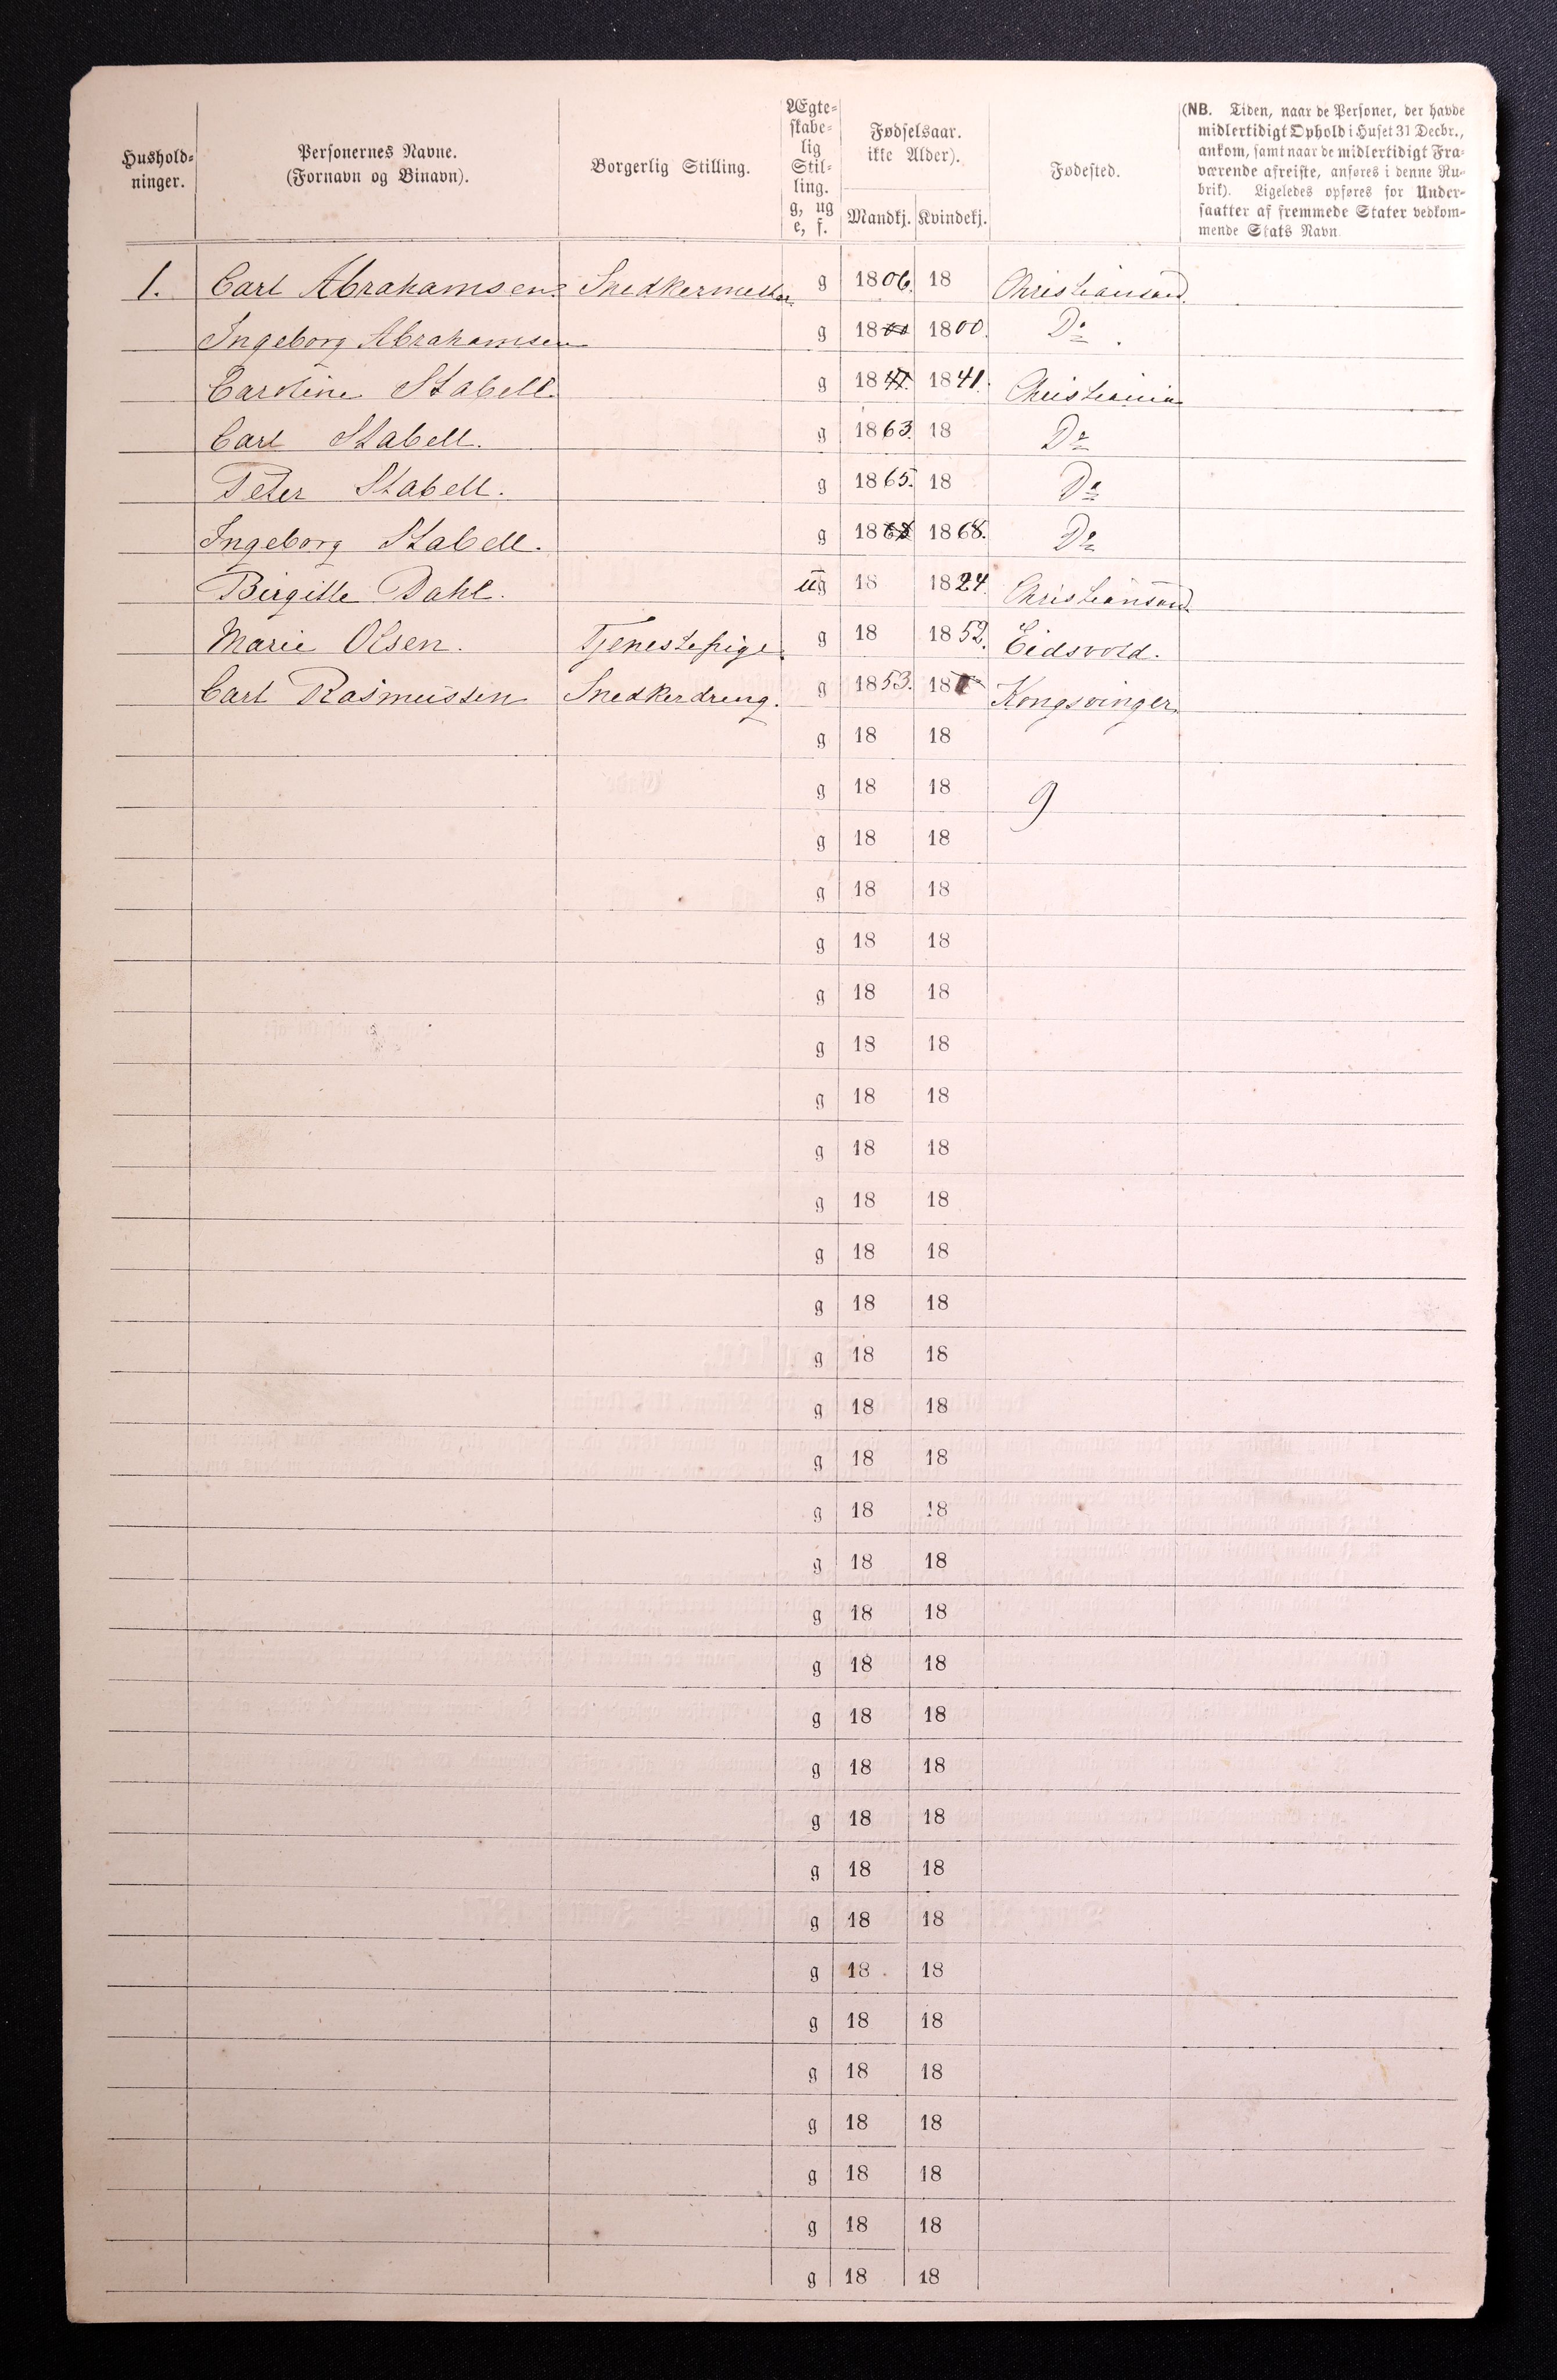 Hushold-
ninger.
Personernes Navne.
(Fornavn og Binavn).
Borgerlig Stilling.
Ægte-
skabe-
lig
Stil-
ling.
g, ug
e, f.
Fødselsaar.
ikke Alder).
Mandkj. Kvindekj.
Fødested.
(NB. Tiden, naar de Personer, der havde
midlertidigt Ophold i Huset 31 Decbr.,
ankom, samt naar de midlertidigt Fra-
værende afreiste, anføres i denne Ru-
brik). Ligeledes opføres for Under-
saatter af fremmede Stater vedkom-
mende Stats Navn.
1. Carl Abrahamsen Snedkermester g 1806. 18 Christiansand
Ingeborg Abrahamsen g 18 1800. Do
Caroline Stabell g 1841. 1841. Christiania
Carl Stabell. g 1863. 18 Do
Peter Stabell. g 1865. 18 Do
Ingeborg Stabell. g 1868 1868. Do
Birgitte Dahl. ug 18 1824. Christiansand
Marie Olsen. Tjenestepige g 18 1852. Eidsvold.
Carl Rasmussen Snedkerdreng. g 1853. 18 Kongsvinger
g 18 18
g 18 18 9
g 18 18
g 18 18
g 18 18
g 18 18
g 18 18
g 18 18
g 18 18
g 18 18
g 18 18
g 18 18
g 18 18
g 18 18
g 18 18
g 18 18
g 18 18
g 18 18
g 18 18
g 18 18
g 18 18
g 18 18
g 18 18
g 18 18
g 18 18
g 18 18
g 18 18
g 18 18
g 18 18
g 18 18
g 18 18